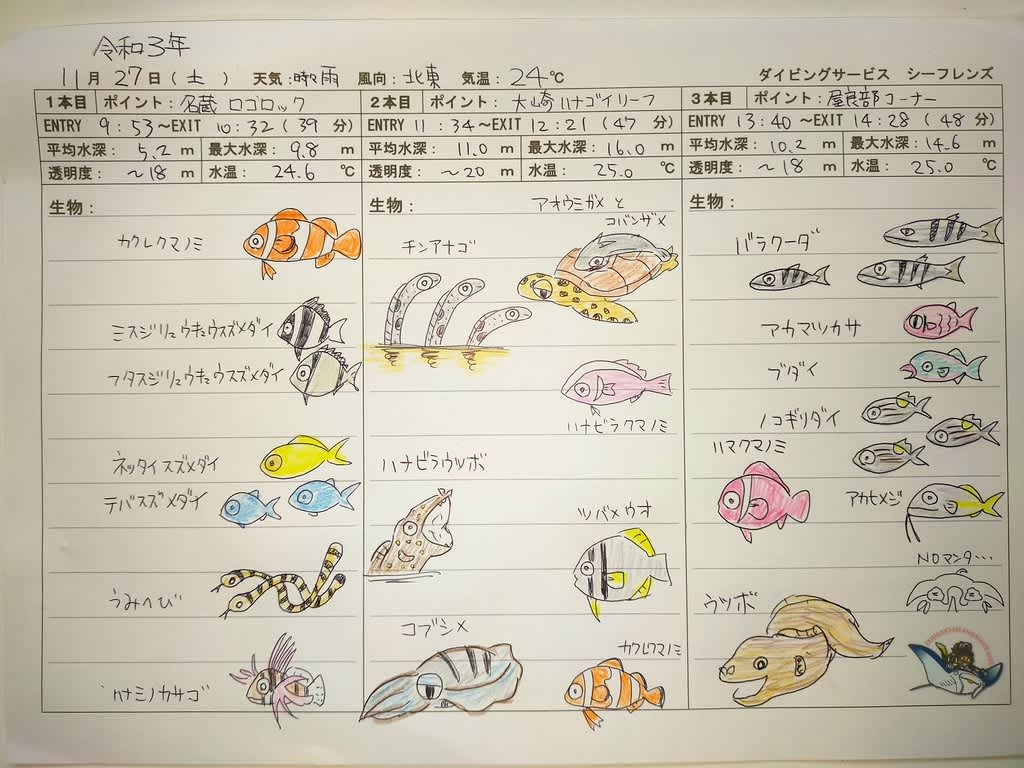 令和3年
11月27日(土) 天気:晴々雨 風向:北東 気温:24℃ ダイビングサービス シーフレンズ
1本目 ポイント:名蔵 ロゴロック
ENTRY 9:53~EXIT 10:32(39 分)
平均水深: 5.2 m 最大水深: 9.8 m
透明度: ~18 m 水温: 24.6 ℃
生物:
カクレクマノミ
ミスジリュウキュウスズメダイ
フタスジリュウキュウスズメダイ
ネッタイスズメダイ
デバスズメダイ
うみへび
ハナミノカサゴ
2本目 ポイント: 大崎ハナゴイリーフ
ENTRY 11:34~EXIT 12:21(47 分)
平均水深: 11.0 m 最大水深: 16.0 m
透明度: ~20 m 水温: 25.0 ℃
生物:
アオウミガメと
コバンザメ
チンアナゴ
ハナビラクマノミ
ハナビラウツボ
ツバメウオ
コブシメ
カクレクマノミ
3本目 ポイント:屋良部コーナー
ENTRY 13:40~EXIT 14:28(48 分)
平均水深: 10.2 m 最大水深:14.6 m
透明度: ~18 m 水温: 25.0 ℃
生物:
バラクーダ
アカマツカサ
ブダイ
ノコギリダイ
ハマクマノミ
アカヒメジ
NOマンタ・・・
ウツボ